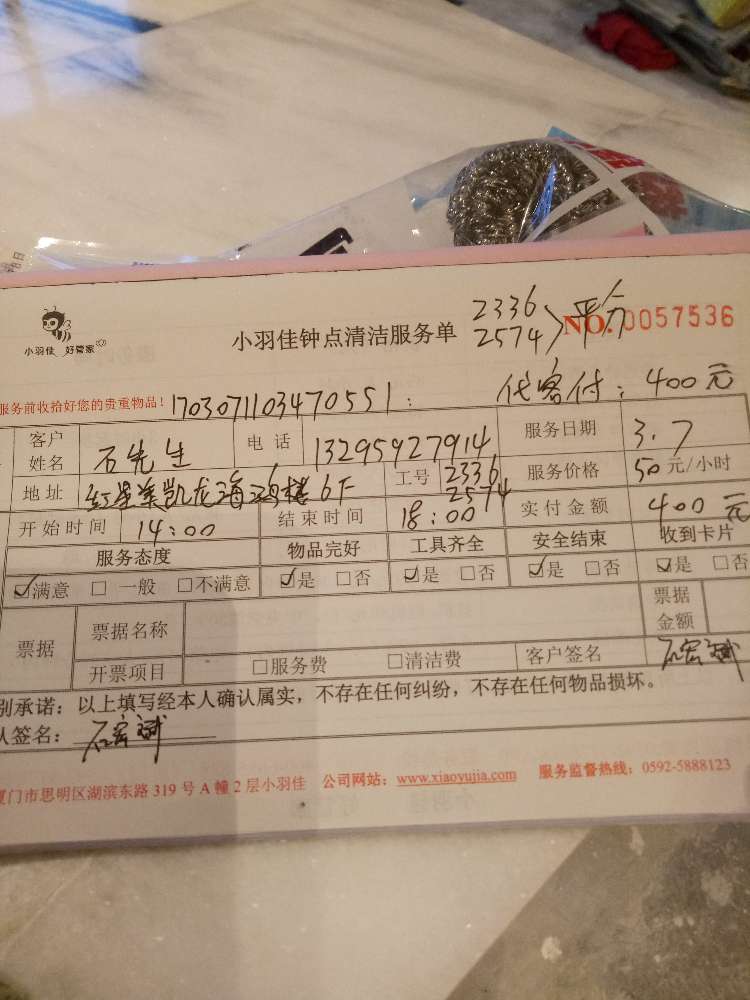 2336
2574 > 平分
小羽佳 好管家
小羽佳钟点清洁服务单
NO. 0057536
服务前收拾好您的贵重物品！ 1703071103470551：
代客付：400元
客户姓名 石先生 电话 13295927914 服务日期 3.7
地址 红星美凯龙海鸿楼6F 工号 2336 2574 服务价格 50元/小时
开始时间 14：00 结束时间 18：00 实付金额 400元
服务态度 物品完好 工具齐全 安全结束 收到卡片
☑满意 □一般 □不满意 ☑是 □否 ☑是 □否 ☑是 □否 ☑是 □否
票据 票据名称 票据金额
开票项目 □服务费 □清洁费 客户签名
别承诺：以上填写经本人确认属实，不存在任何纠纷，不存在任何物品损坏。
人签名：
厦门市思明区湖滨东路 319 号 A 幢 2 层小羽佳 公司网站：www.xiaoyujia.com 服务监督热线：0592-5888123